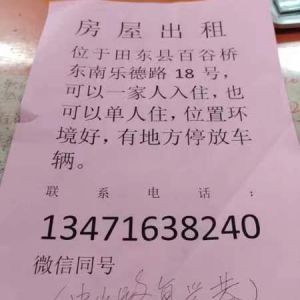 房屋出租
位于田东县百谷桥
东南乐德路 18 号，
可以一家人入住，也
可以单人住，位置环
境好，有地方停放车
辆。
联系电话：
13471638240
微信同号